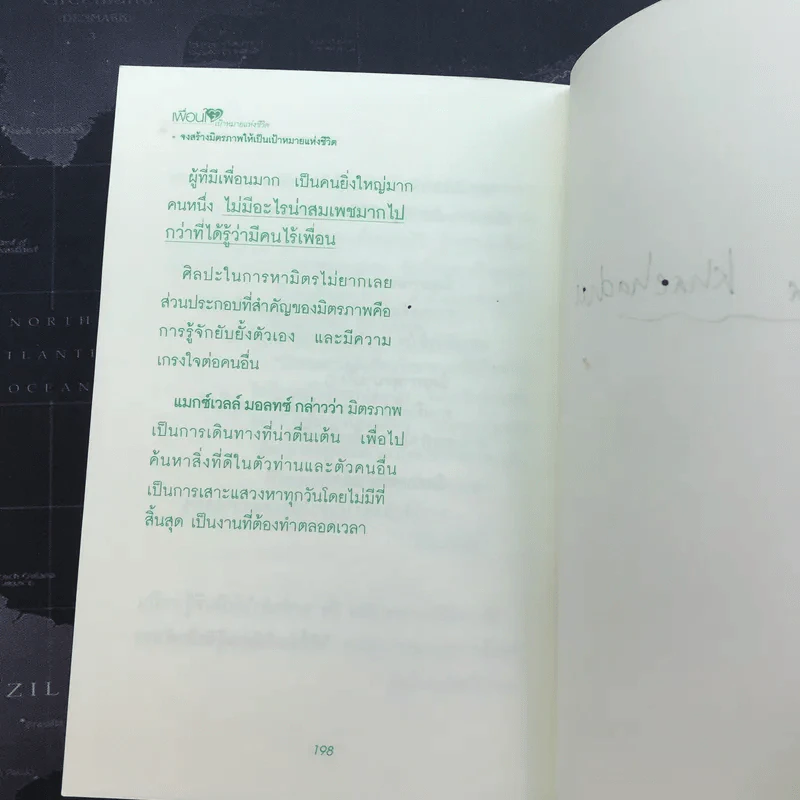 เพื่อนใจ
เป้าหมายแห่งชีวิต
• จงสร้างมิตรภาพให้เป็นเป้าหมายแห่งชีวิต
ผู้ที่มีเพื่อนมาก เป็นคนยิ่งใหญ่มาก
คนหนึ่ง ไม่มีอะไรน่าสมเพชมากไป
กว่าที่ได้รู้ว่ามีคนไร้เพื่อน
ศิลปะในการหามิตรไม่ยากเลย
ส่วนประกอบที่สำคัญของมิตรภาพคือ
การรู้จักยับยั้งตัวเอง และมีความ
เกรงใจต่อคนอื่น
แมกซ์เวลล์ มอลทซ์ กล่าวว่า มิตรภาพ
เป็นการเดินทางที่น่าตื่นเต้น เพื่อไป
ค้นหาสิ่งที่ดีในตัวท่านและตัวคนอื่น
เป็นการเสาะแสวงหาทุกวันโดยไม่มีที่
สิ้นสุด เป็นงานที่ต้องทำตลอดเวลา
198
DENMARK
NORTH
OCEAN
ZIL